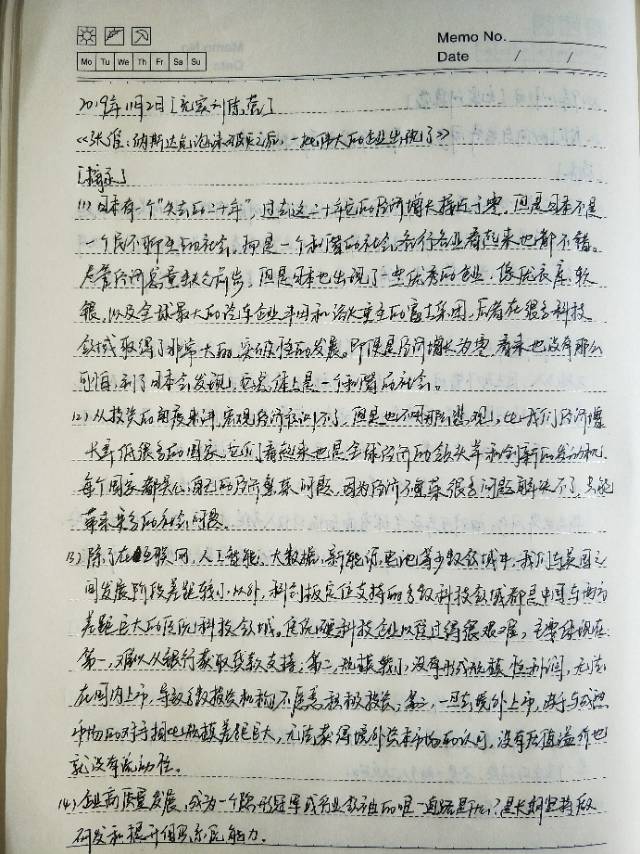 Memo No.
Mo Tu We Th Fr Sa Su
Date / /
2019年11月2日
《张维:纳斯达克泡沫破灭之后,一批伟大的企业出现了》
[摘录]
(1)日本有一个"失去的二十年",过去这二十年它的经济增长接近于零,但是日本不是
一个民不聊生的社会,却是一个和谐的社会,各行各业看起来也都不错。
尽管经济总量裹足前步,但是日本也出现了一些优秀的企业,像优衣库、软
银,以及全球最大的汽车企业丰田和浴火重生的富士集团,后者在很多科技
领域取得了非常大的、突破性的发展。即便是经济增长为零,看来也没有那么
可怕,到了日本会发现,它总体上是一个和谐的社会。
(2)从投资的角度来讲,宏观经济控制不了,但是也不用那么悲观,比我们经济增
长率低很多的国家,它们看起来也是全球经济的领头羊和创新的发动机。
每个国家都关心自己的经济繁荣问题,因为经济不繁荣很多问题解决不了,只能
带来更多的社会问题。
(3)除了在互联网、人工智能、大数据、新能源电池等少数领域中,我们与美国之
间发展阶段差距较小以外,科创板定位支持的多数科技领域都是中国与西方
差距巨大的硬科技领域。硬科技企业以往过得很艰难,主要体现在:
第一,难以从银行获取贷款支持;第二,规模较小,没有形成规模性利润,无法
在国内上市,导致多数投资机构不愿意积极投资;第三,一旦去境外上市,由于与成熟
市场的对手相比规模差距巨大,无法获得境外资本市场的认可,没有估值溢价也
就没有流动性。
(4)企业高质量发展,成为一个隐形冠军或行业领袖的唯一道路是什么?是长期坚持做
研发和提升组织系统能力。